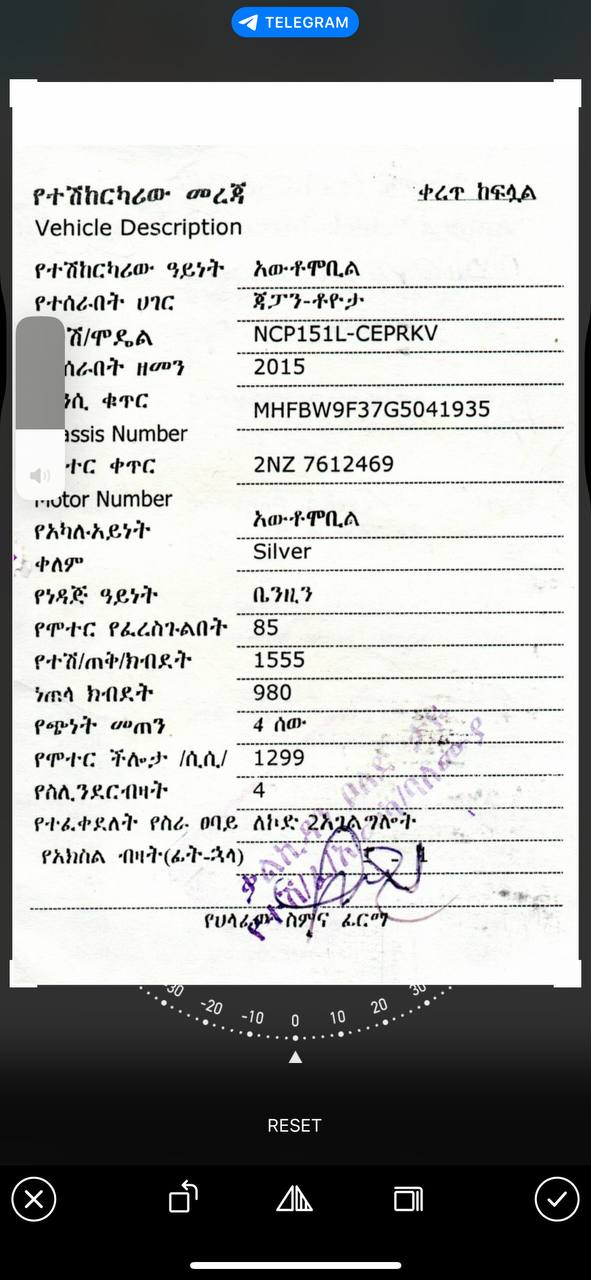 TELEGRAM
የተሽከርካሪው መረጃ
ቀረጥ ከፍሏል
Vehicle Description
የተሽከርካሪው ዓይነት አውቶሞቢል
የተሰራበት ሀገር ጃፓን-ቶዮታ
ሽ/ሞዴል NCP151L-CEPRKV
ሰራበት ዘመን 2015
ንሲ ቁጥር MHFBW9F37G5041935
assis Number
ተር ቀጥር 2NZ 7612469
Motor Number
የአካሉአይነት አውቶሞቢል
ቀለም Silver
የነዳጅ ዓይነት ቤንዚን
የሞተር የፈረስጉልበት 85
የተሽ/ጠቅ/ክብደት 1555
ነጠላ ክብደት 980
የጭነት መጠን 4 ሰው
የሞተር ችሎታ /ሲሲ/ 1299
የስሊንደርብዛት 4
የተፈቀደለት የስራ ፀባይ ለኮድ 2አገልግሎት
የአክስል ብዛት(ፊት-ኋላ) 1 - 1
የሀላፊው ስምና ፊርማ
-30 -20 -10 0 10 20 30
RESET